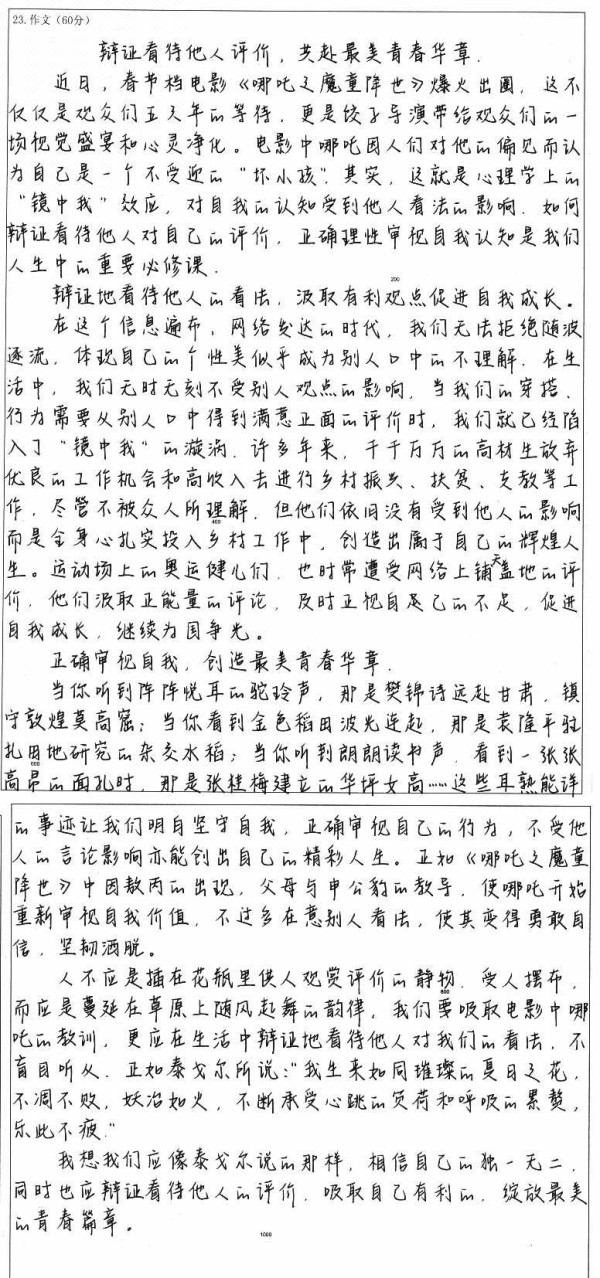 23.作文（60分）
辩证看待他人评价，共赴最美青春华章.
近日，春节档电影《哪吒之魔童降世》爆火出圈，这不
仅仅是观众们五久年的等待，更是饺子导演带给观众们的一
场视觉盛宴和心灵净化。电影中哪吒因人们对他的偏见而认
为自己是一个不受迎的“坏小孩”.其实，这就是心理学上的
“镜中我”效应，对自我的认知受到他人看法的影响.如何
辩证看待他人对自己的评价，正确理性审视自我认知是我们
人生中的重要必修课.
200
辩证地看待他人的看法，汲取有利观点促进自我成长。
在这个信息遍布，网络发达的时代，我们无法拒绝随波
逐流，体现自己的个性美似乎成为别人口中的不理解.在生
活中，我们无时无刻不受别人观点的影响，当我们的穿搭、
行为需要从别人口中得到满意正面的评价时，我们就已经陷
入了“镜中我”的漩涡.许多年来，千千万万的高材生放弃
优良的工作机会和高收入去进行乡村振兴、扶贫、支教等工
作，尽管不被众人所理解，但他们依旧没有受到他人的影响
400
而是全身心扎实投入乡村工作中，创造出属于自己的辉煌人
生。运动场上的奥运健儿们，也时常遭受网络上铺天盖地的评
价，他们汲取正能量的评论，及时正视自足己的不足，促进
自我成长，继续为国争光。
正确审视自我，创造最美青春华章.
当你听到阵阵悦耳的驼玲声，那是樊锦诗远赴甘肃，镇
守敦煌莫高窟；当你看到金色稻田波光连起，那是袁隆平驻
扎田地研究的杂交水稻；当你听到朗朗读书声，看到一张张
600
高昂的面孔时，那是张桂梅建立的华坪女高……这些耳熟能详
的事迹让我们明白坚守自我，正确审视自己的行为，不受他
人的言论影响亦能创出自己的精彩人生。正如《哪吒之魔童
降世》中因敖丙的出现，父母与申公豹的教导，使哪吒开始
重新审视自我价值，不过多在意别人看法，使其变得勇敢自
信，坚韧洒脱。
人不应是插在花瓶里供人观赏评价的静物，受人摆布，
800
而应是蔓延在草原上随风起舞的韵律，我们要吸取电影中哪
吒的教训，更应在生活中辩证地看待他人对我们的看法，不
盲目听从.正如泰戈尔所说：“我生来如同璀璨的夏日之花，
不凋不败，妖冶如火，不断承受心跳的负荷和呼吸的累赘，
乐此不疲.”
我想我们应像泰戈尔说的那样，相信自己的独一无二，
同时也应辩证看待他人的评价，吸取自己有利的，绽放最美
的青春篇章。
1000